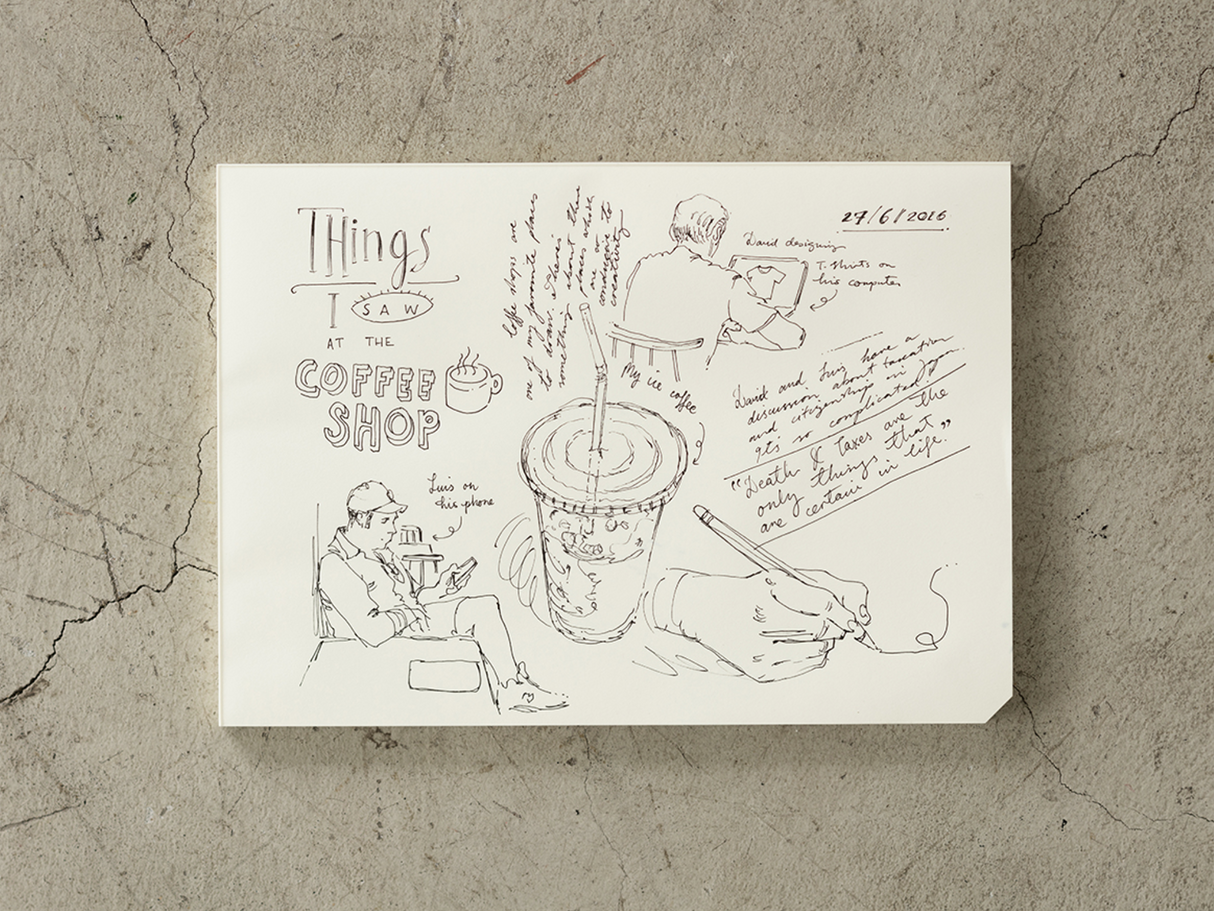 Things
I SAW
AT THE
COFFEE
SHOP
Coffee shops are
one of my favorite places
to draw. There's
something about these
places which
are so
conducive to
creativity
27/6/2016
David designing
T-Shirts on
his computer
My ice coffee
David and Luis have a
discussion about taxation
and citizenship in Japan.
It's so complicated!
"Death & Taxes are the
only things that
are certain in life."
Luis on
his phone